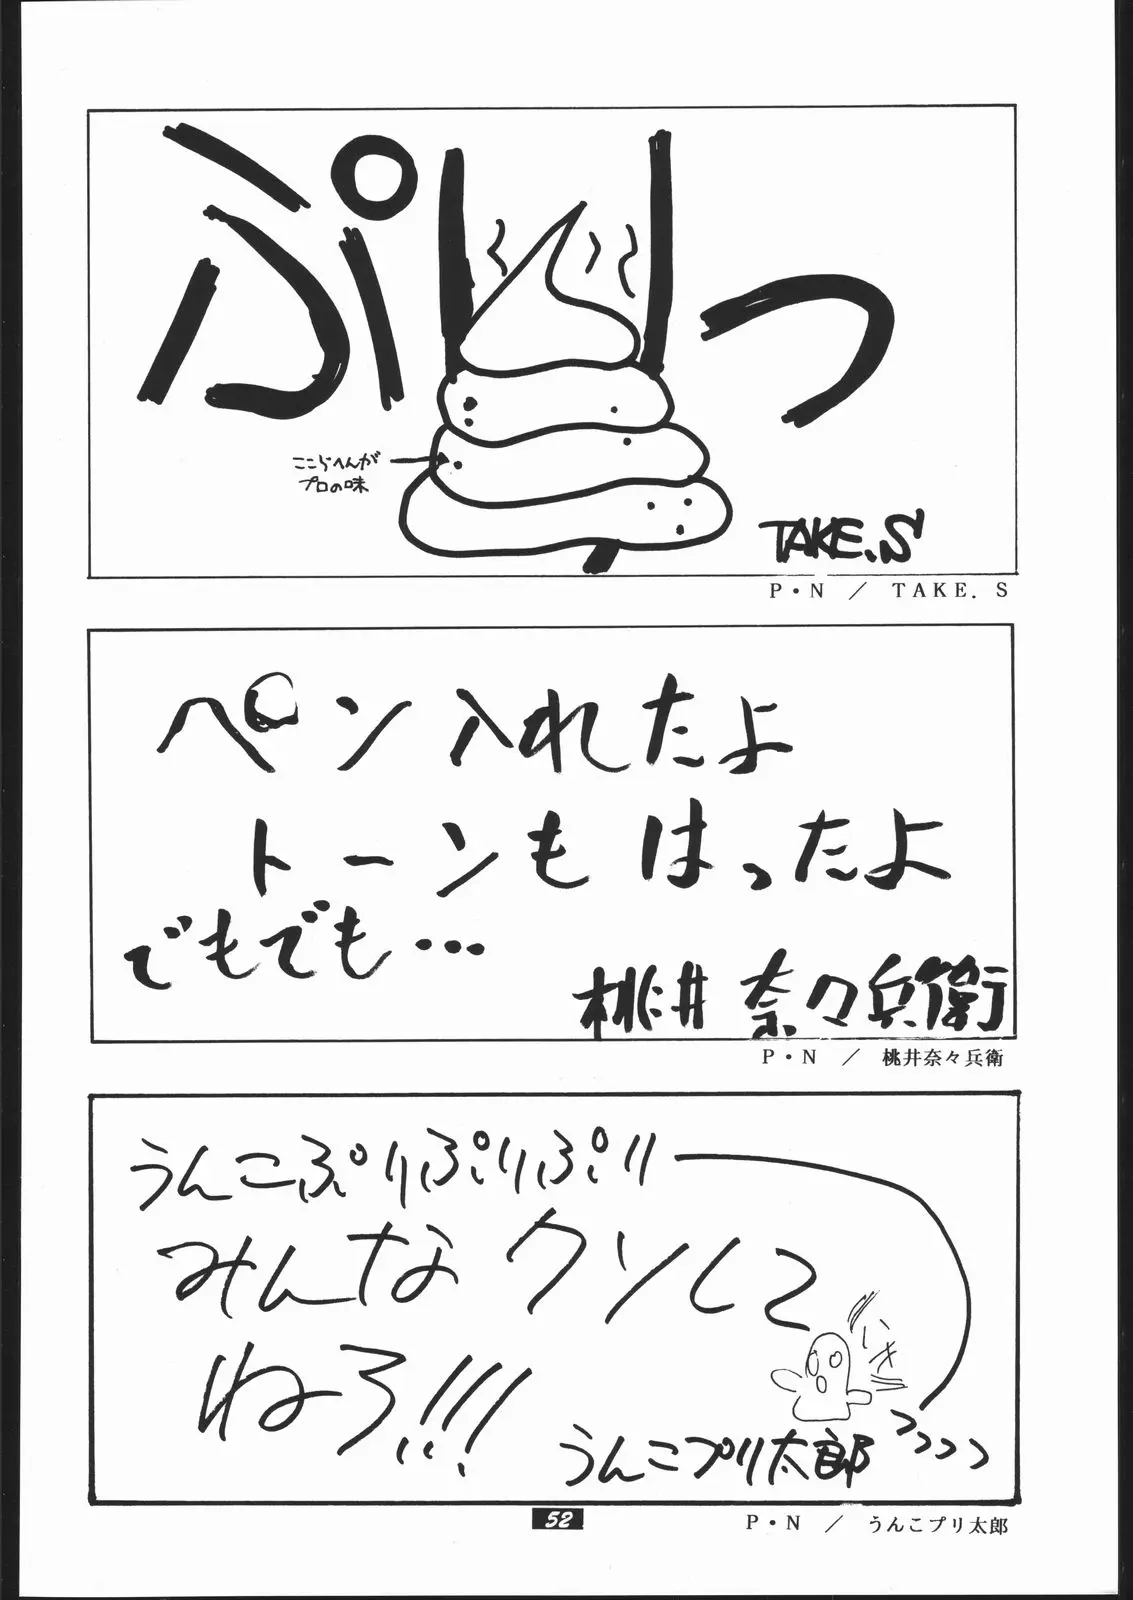 ぷりっ
ここらへんが
プロの味
TAKE.S
P・N ／ TAKE. S
ペン入れたよ
トーンもはったよ
でもでも…
桃井 奈々兵衛
P・N ／ 桃井奈々兵衛
うんこぷりぷりぷり
みんなクソして
ねろ!!!
いき
うんこプリ太郎
っっっっ
52
P・N ／ うんこプリ太郎